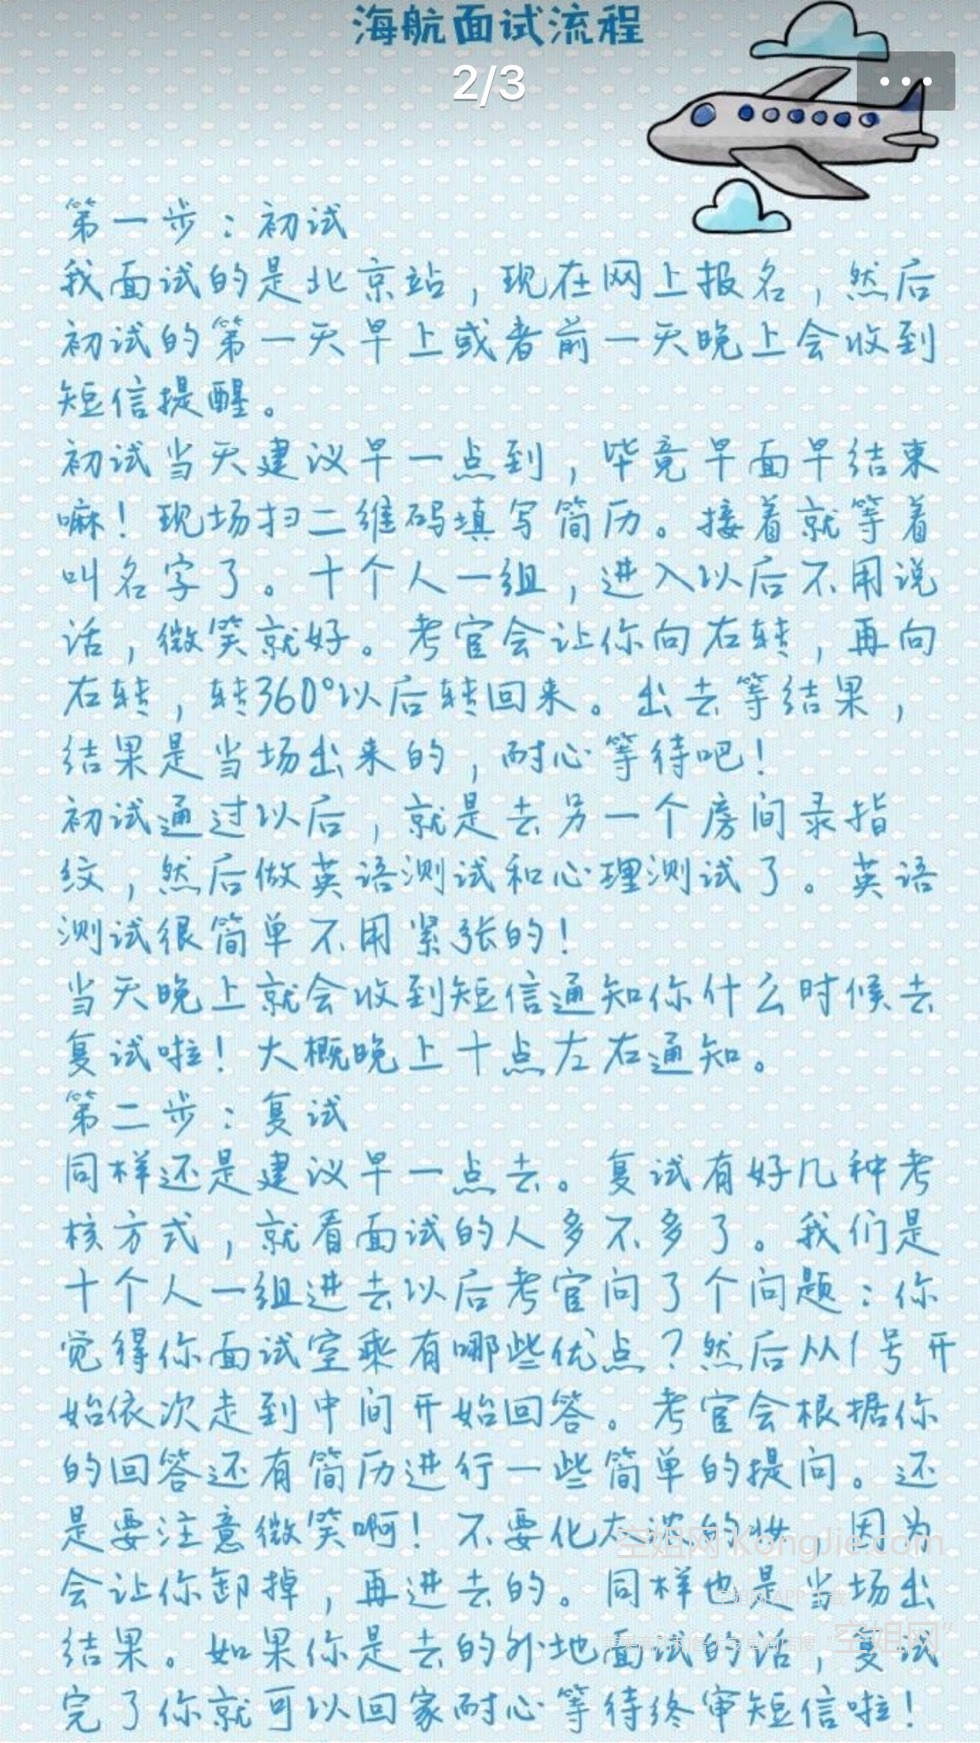 海航面试流程
2/3
第一步：初试
我面试的是北京站，现在网上报名，然后
初试的第一天早上或者前一天晚上会收到
短信提醒。
初试当天建议早一点到，毕竟早面早结束
嘛！现场扫二维码填写简历。接着就等着
叫名字了。十个人一组，进入以后不用说
话，微笑就好。考官会让你向右转，再向
右转，转360°以后转回来。出去等结果，
结果是当场出来的，耐心等待吧！
初试通过以后，就是去另一个房间录指
纹，然后做英语测试和心理测试了。英语
测试很简单不用紧张的！
当天晚上就会收到短信通知你什么时候去
复试啦！大概晚上十点左右通知。
第二步：复试
同样还是建议早一点去。复试有好几种考
核方式，就看面试的人多不多了。我们是
十个人一组进去以后考官问了个问题：你
觉得你面试空乘有哪些优点？然后从1号开
始依次走到中间开始回答。考官会根据你
的回答还有简历进行一些简单的提问。还
是要注意微笑啊！不要化太浓的妆，因为
空姐网 KongJie.com
会让你卸掉，再进去的。同样也是当场出
结果。如果你是去的外地面试的话，复试
空姐网"
完了你就可以回家耐心等待终审短信啦！